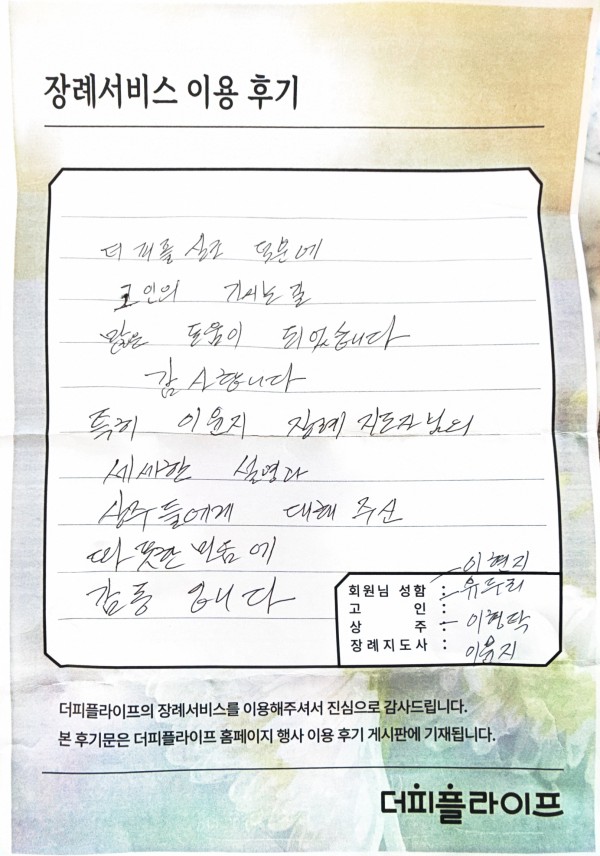 장례서비스 이용 후기
더 피플 상조 덕분에
고인의 가시는 길
많은 도움이 되었습니다
감사합니다
특히 이윤지 장례 지도자님의
세세한 설명과
상주들에게 대해 주신
따뜻한 마음에
감동 입니다
회원님 성함 : 이현지
고 인 : 유두리
상 주 : 이형탁
장례지도사 : 이윤지
더피플라이프의 장례서비스를 이용해주셔서 진심으로 감사드립니다.
본 후기문은 더피플라이프 홈페이지 행사 이용 후기 게시판에 기재됩니다.
더피플라이프